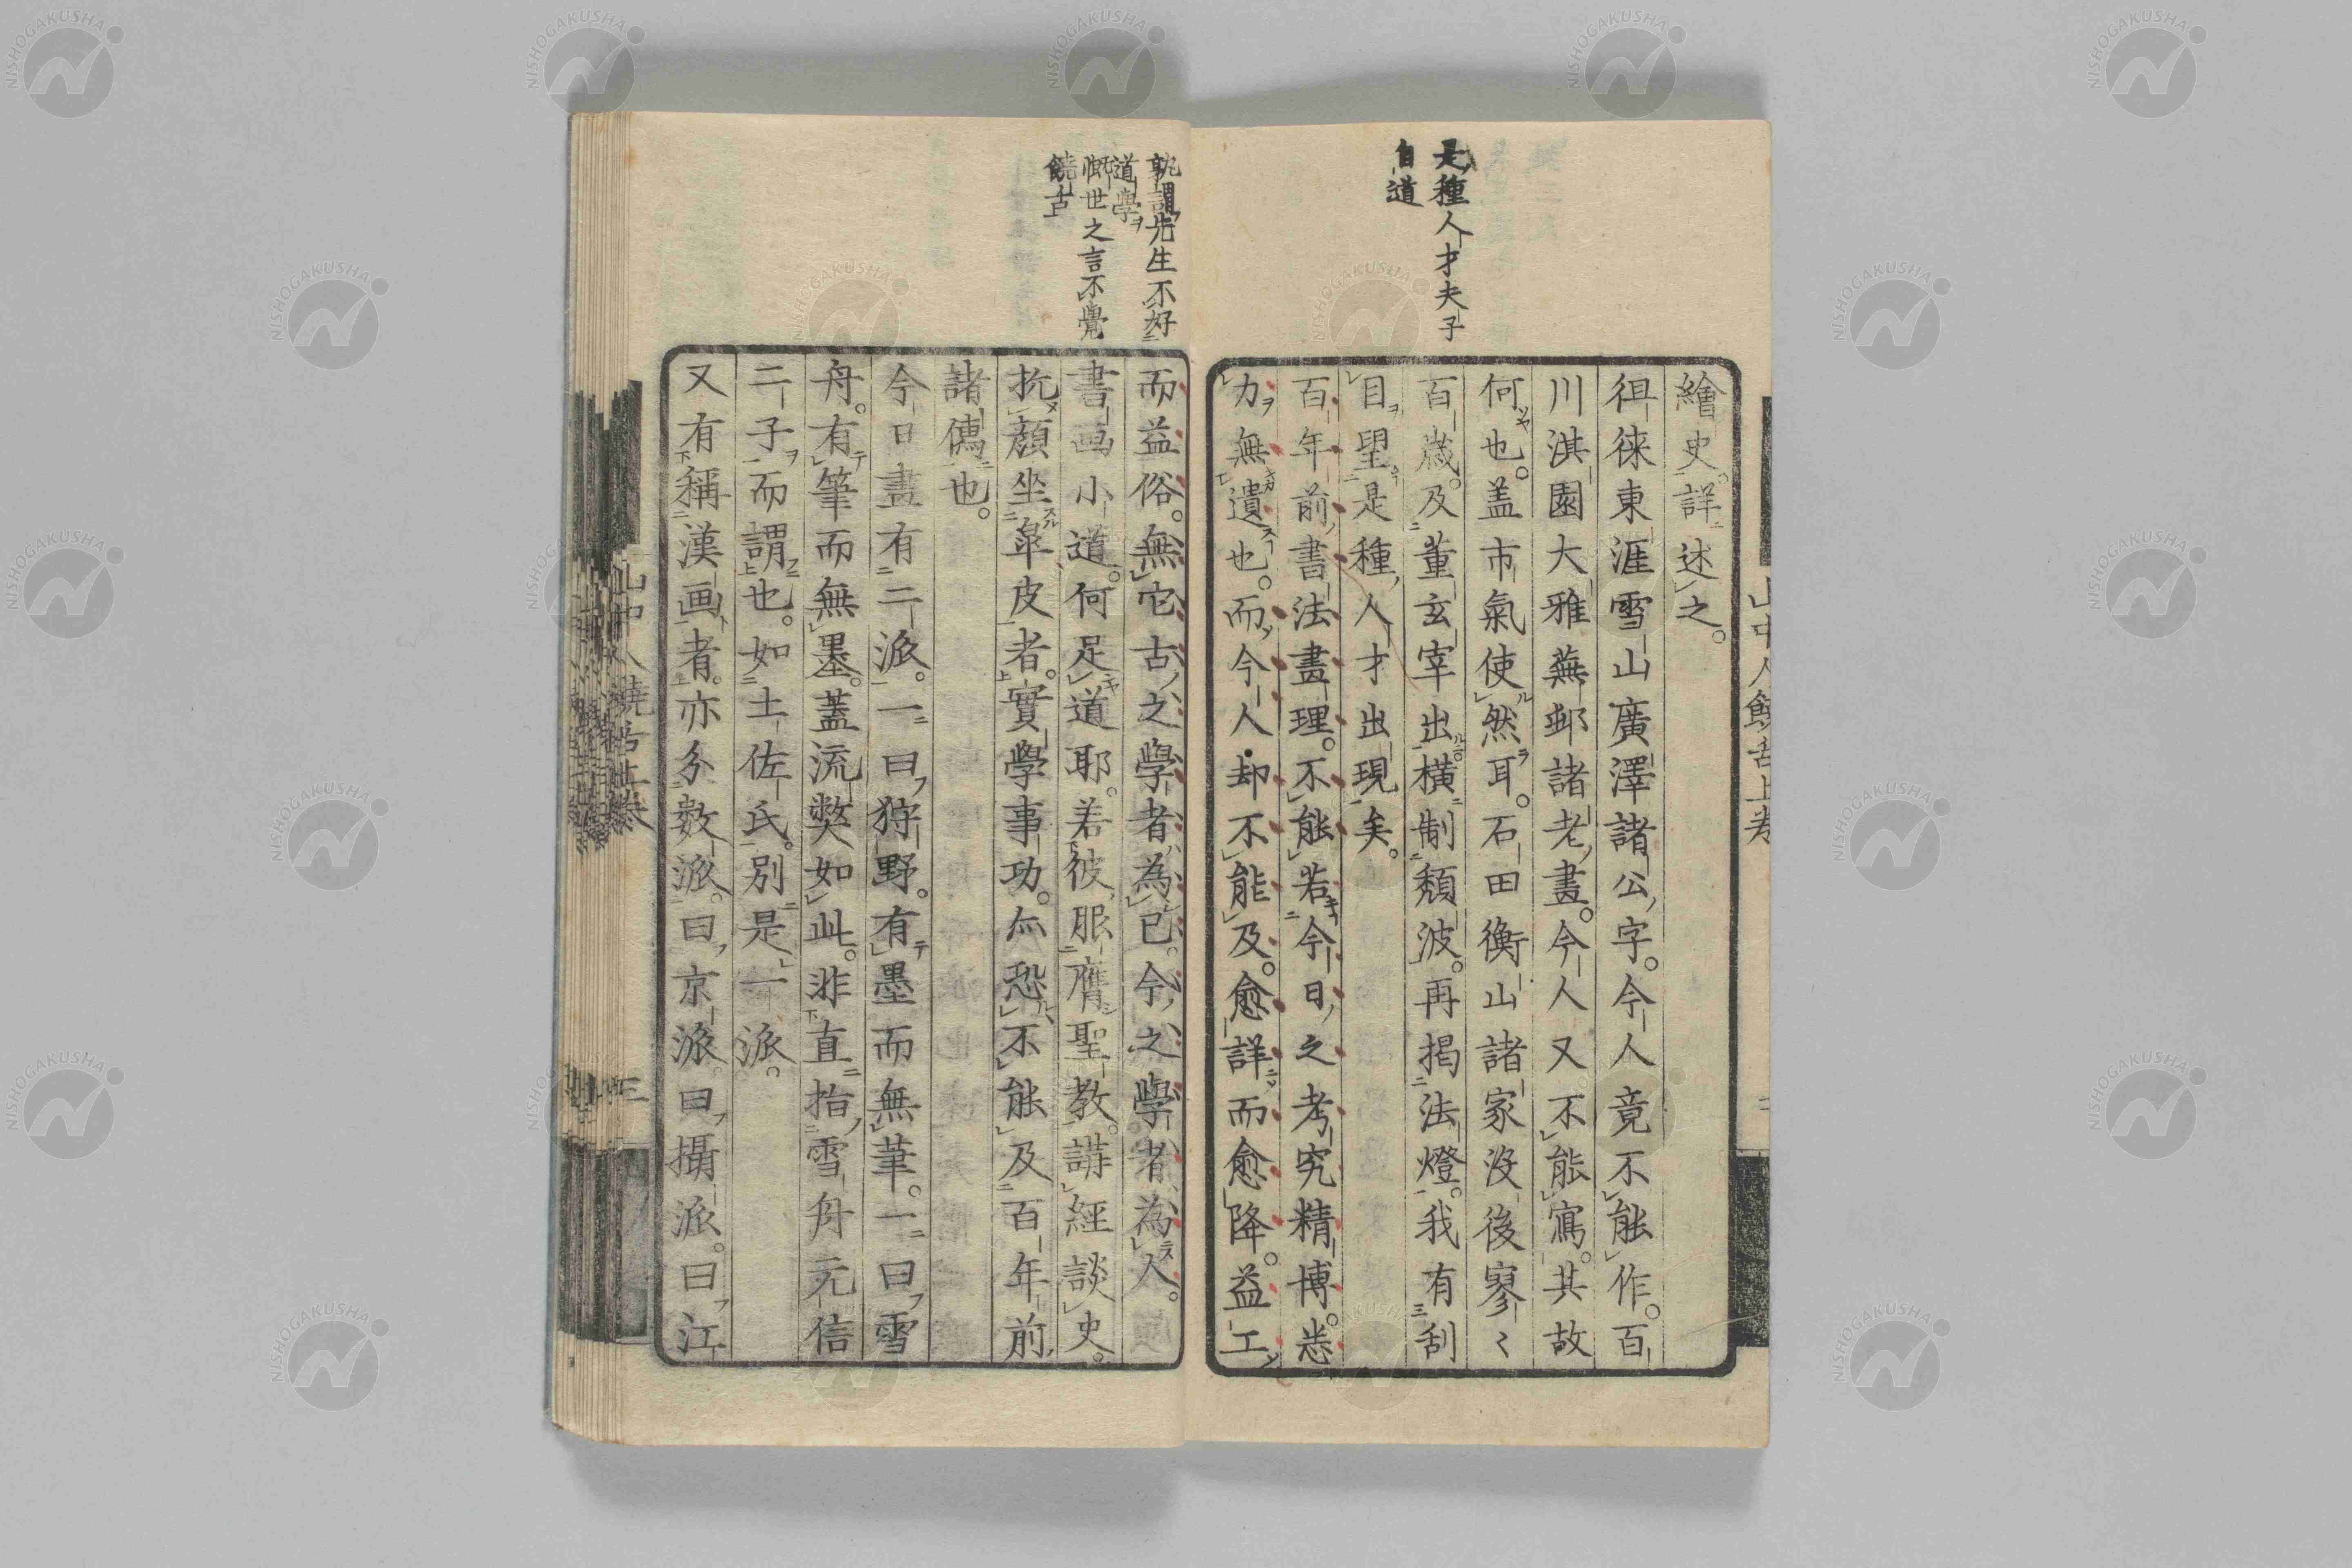 是種人才夫子
自道
繪史。詳述之。
徂徠東涯雪山廣澤諸公字。今人竟不能作。百
川淇園大雅蕪邨諸老畫。今人又不能寫。其故
何也。盖市氣使然耳。石田衡山諸家沒後寥〻
百歲。及董玄宰出。横制頽波。再揭法燈。我有刮
目望是種人才出現矣。
百年前書法畫理。不能若今日之考究精博。悉
力無遺也。而今人却不能及。愈詳而愈降。益工
而益俗。無它古之學者為已。今之學者為人。
孰謂先生不好
道學
慨世之言不覺
饒舌
書画小道。何足道耶。若彼服膺聖教。講經談史。
抗顔坐皐皮者。實學事功。亦恐不能及百年前
諸儒也。
今日畫有二派。一曰狩野。有墨而無筆。一曰雪
舟。有筆而無墨。蓋流獘如此。非直指雪舟元信
二子而謂也。如土佐氏。別是一派。
又有稱漢画者。亦分數派。曰京派。曰攝派。曰江
山中人饒舌上卷
三